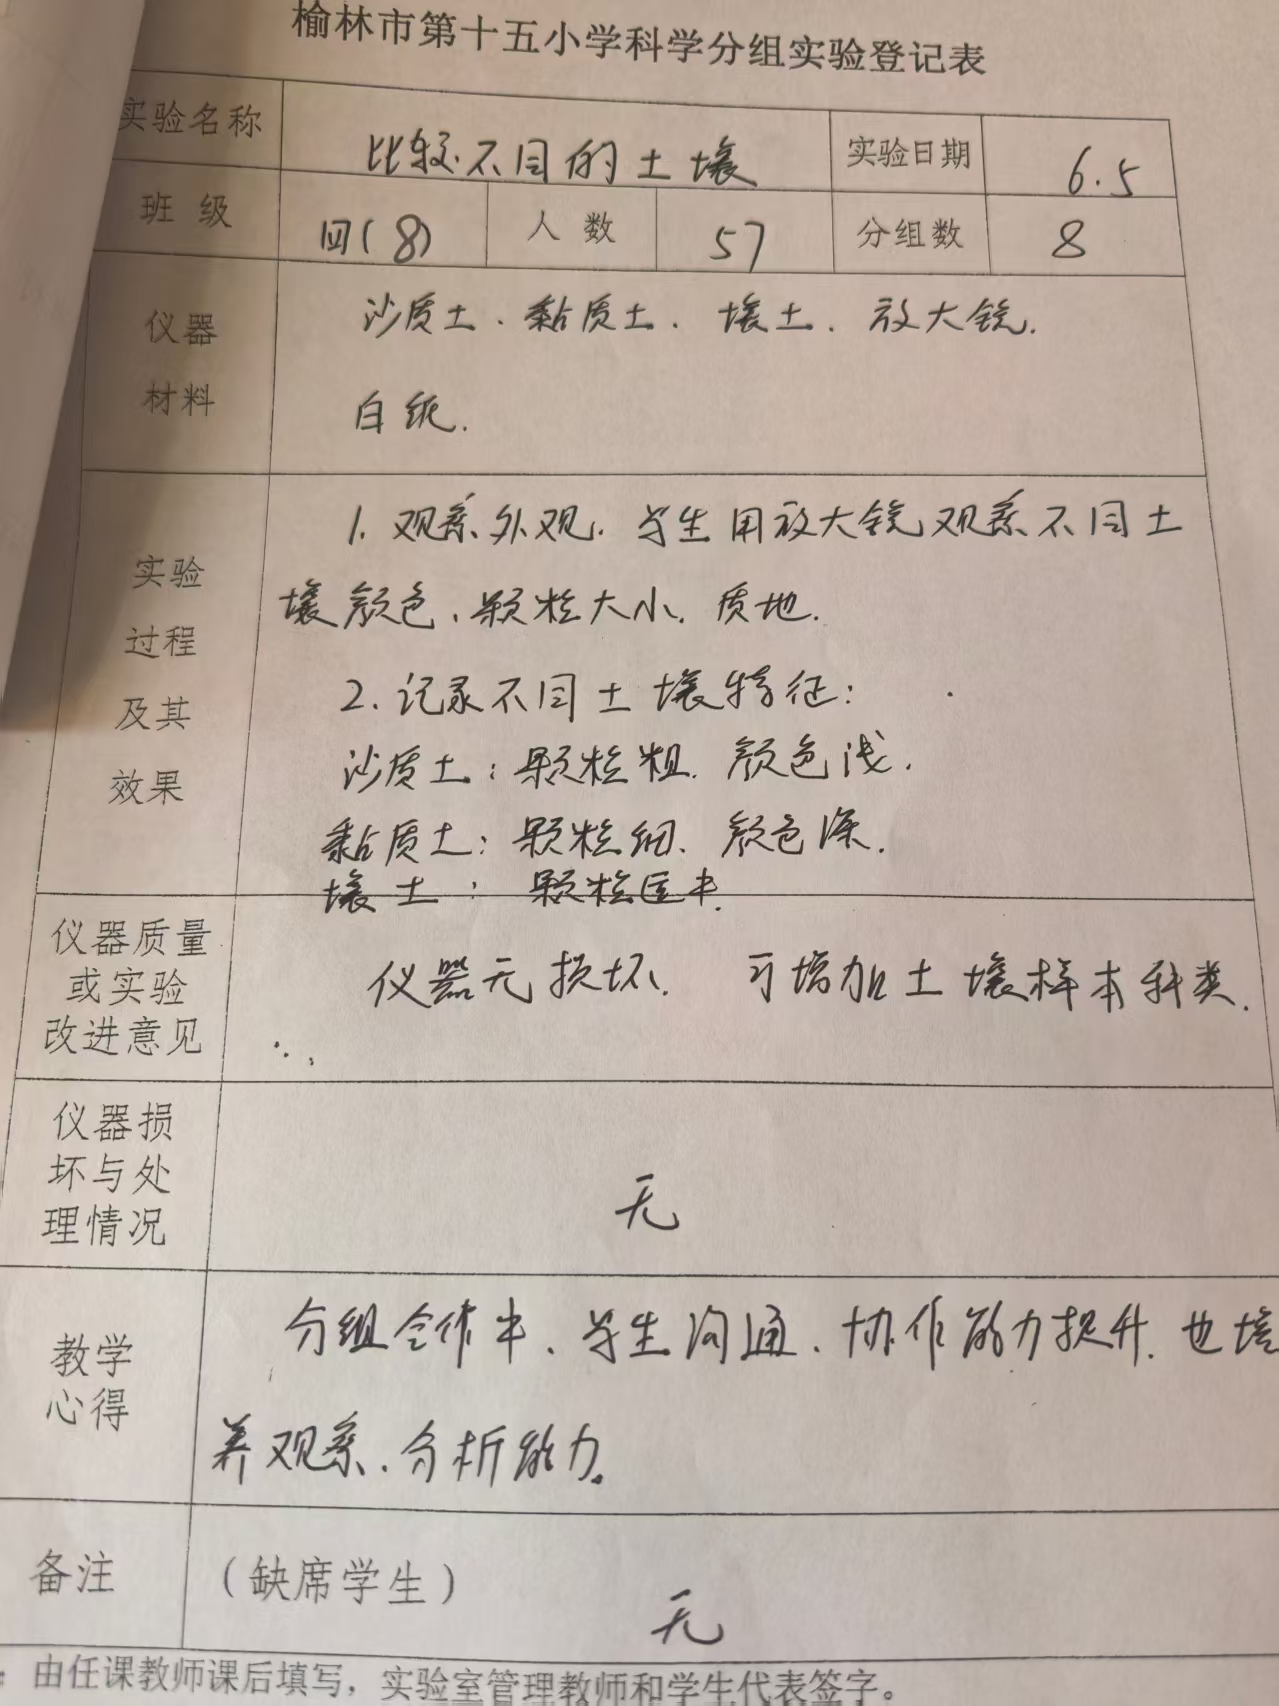 榆林市第十五小学科学分组实验登记表
实验名称 比较不同的土壤 实验日期 6.5
班级 四(8) 人数 57 分组数 8
仪器
材料
沙质土、黏质土、壤土、放大镜.
白纸.
实验
过程
及其
效果
1. 观察外观. 学生用放大镜观察不同土
壤颜色、颗粒大小. 质地.
2. 记录不同土壤特征:
沙质土: 颗粒粗. 颜色浅.
黏质土: 颗粒细. 颜色深.
壤土: 颗粒居中.
仪器质量
或实验
改进意见
仪器无损坏. 可增加土壤样本种类.
仪器损
坏与处
理情况
无
教学
心得
分组合作中、学生沟通、协作能力提升. 也培
养观察、分析能力。
备注 (缺席学生) 无
: 由任课教师课后填写，实验室管理教师和学生代表签字。